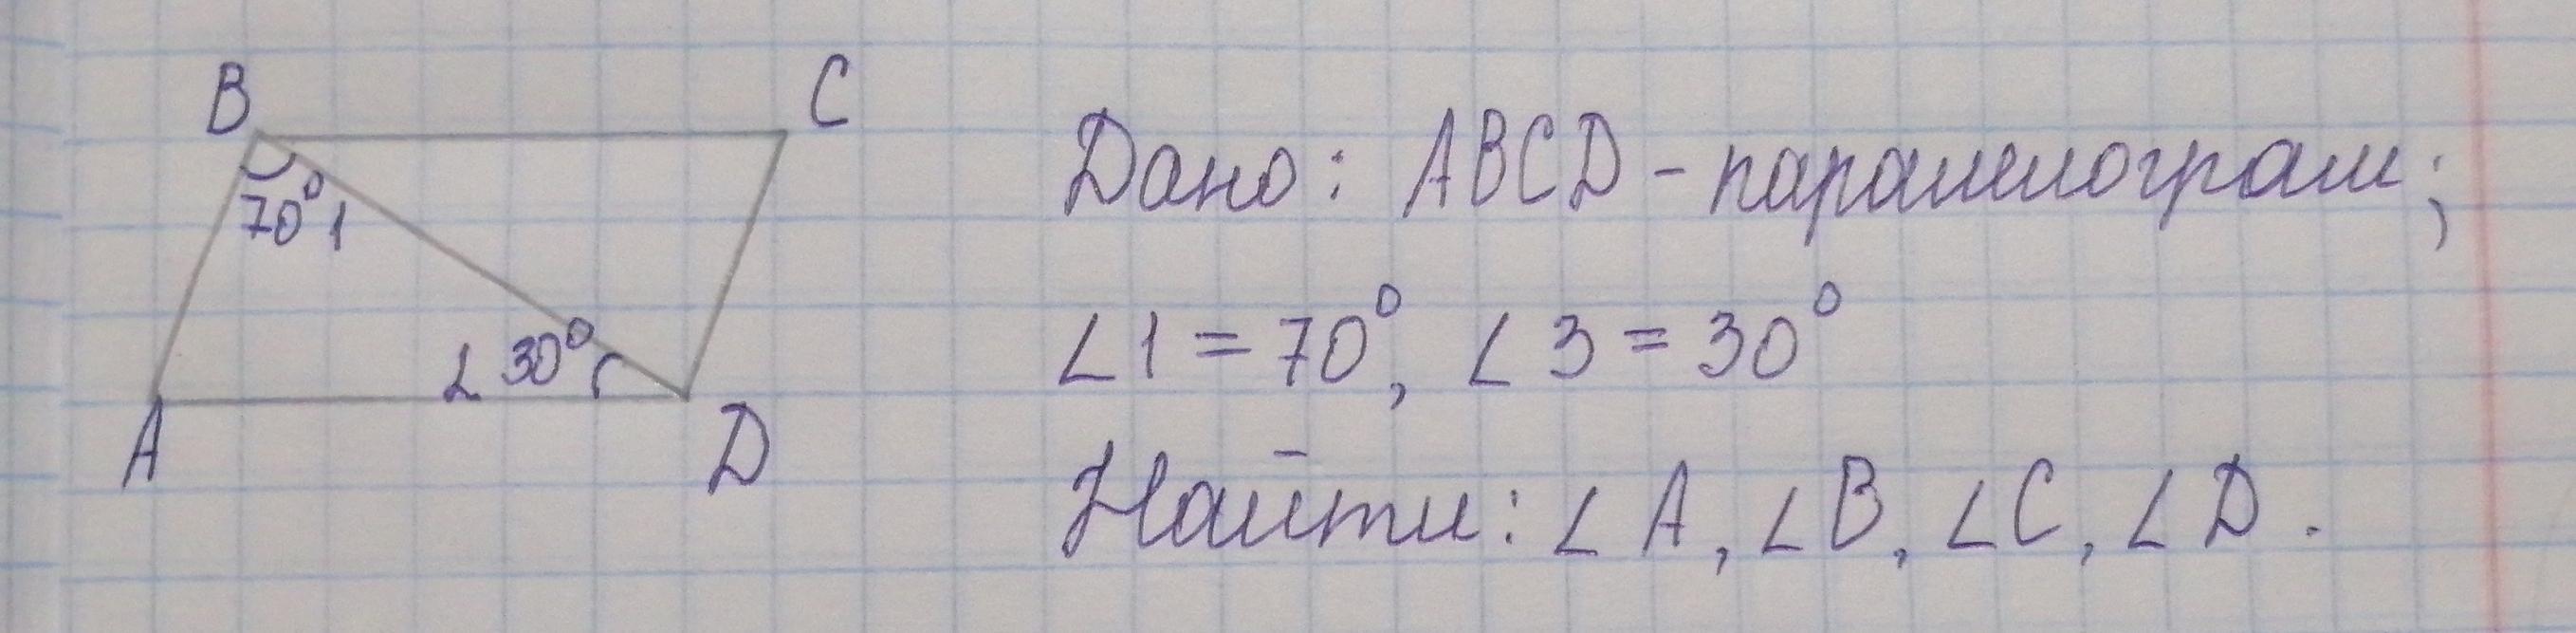 B
C
70° 1
∠ 30°
A
D
Дано: ABCD - параллелограм;
∠1 = 70°, ∠3 = 30°
Найти: ∠A, ∠B, ∠C, ∠D.